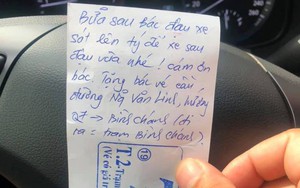 Bữa sau bác đậu xe
sát lên tý để xe sau
đậu vừa nhé! Cảm ơn
bác. Tặng bác vé cầu
đường Ng Văn Linh, hướng
Q7 → Bình Chánh (đi
ra = trạm Bình Chánh).
19
T.2-Trạm